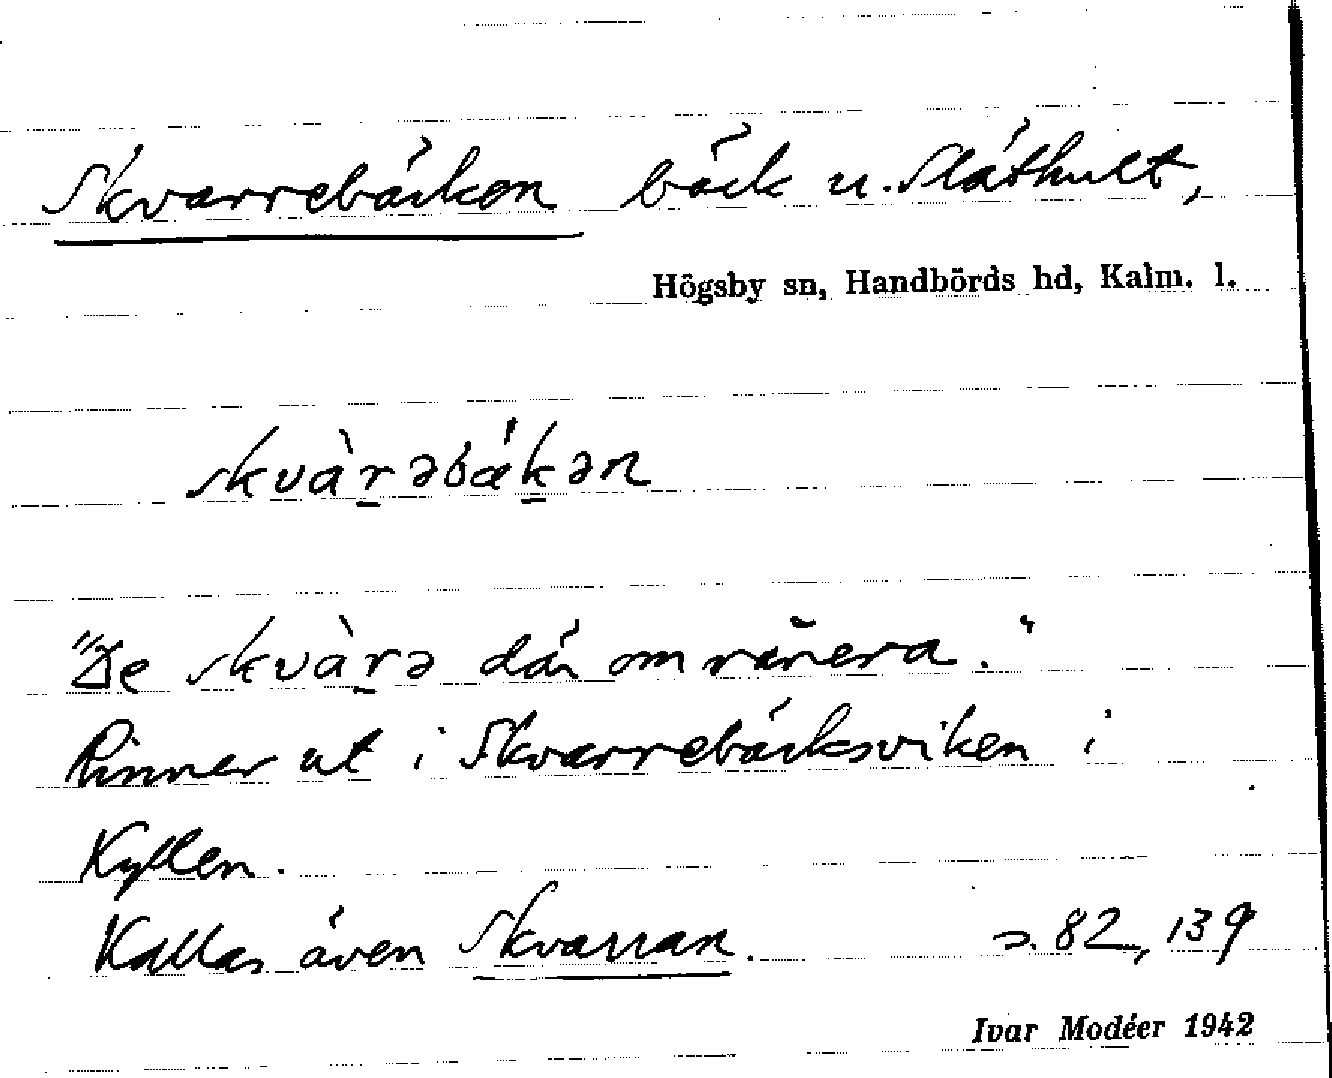 Skvarrebäcken bäck u. Släthult,
Högsby sn, Handbörds hd, Kalm. l.
skvàrəbákən
"De skvàrə där om
Rinner ut i Skvarrebäcksviken i
Kyllen.
Kallas även Skvarran. s. 82, 139
Ivar Modéer 1942